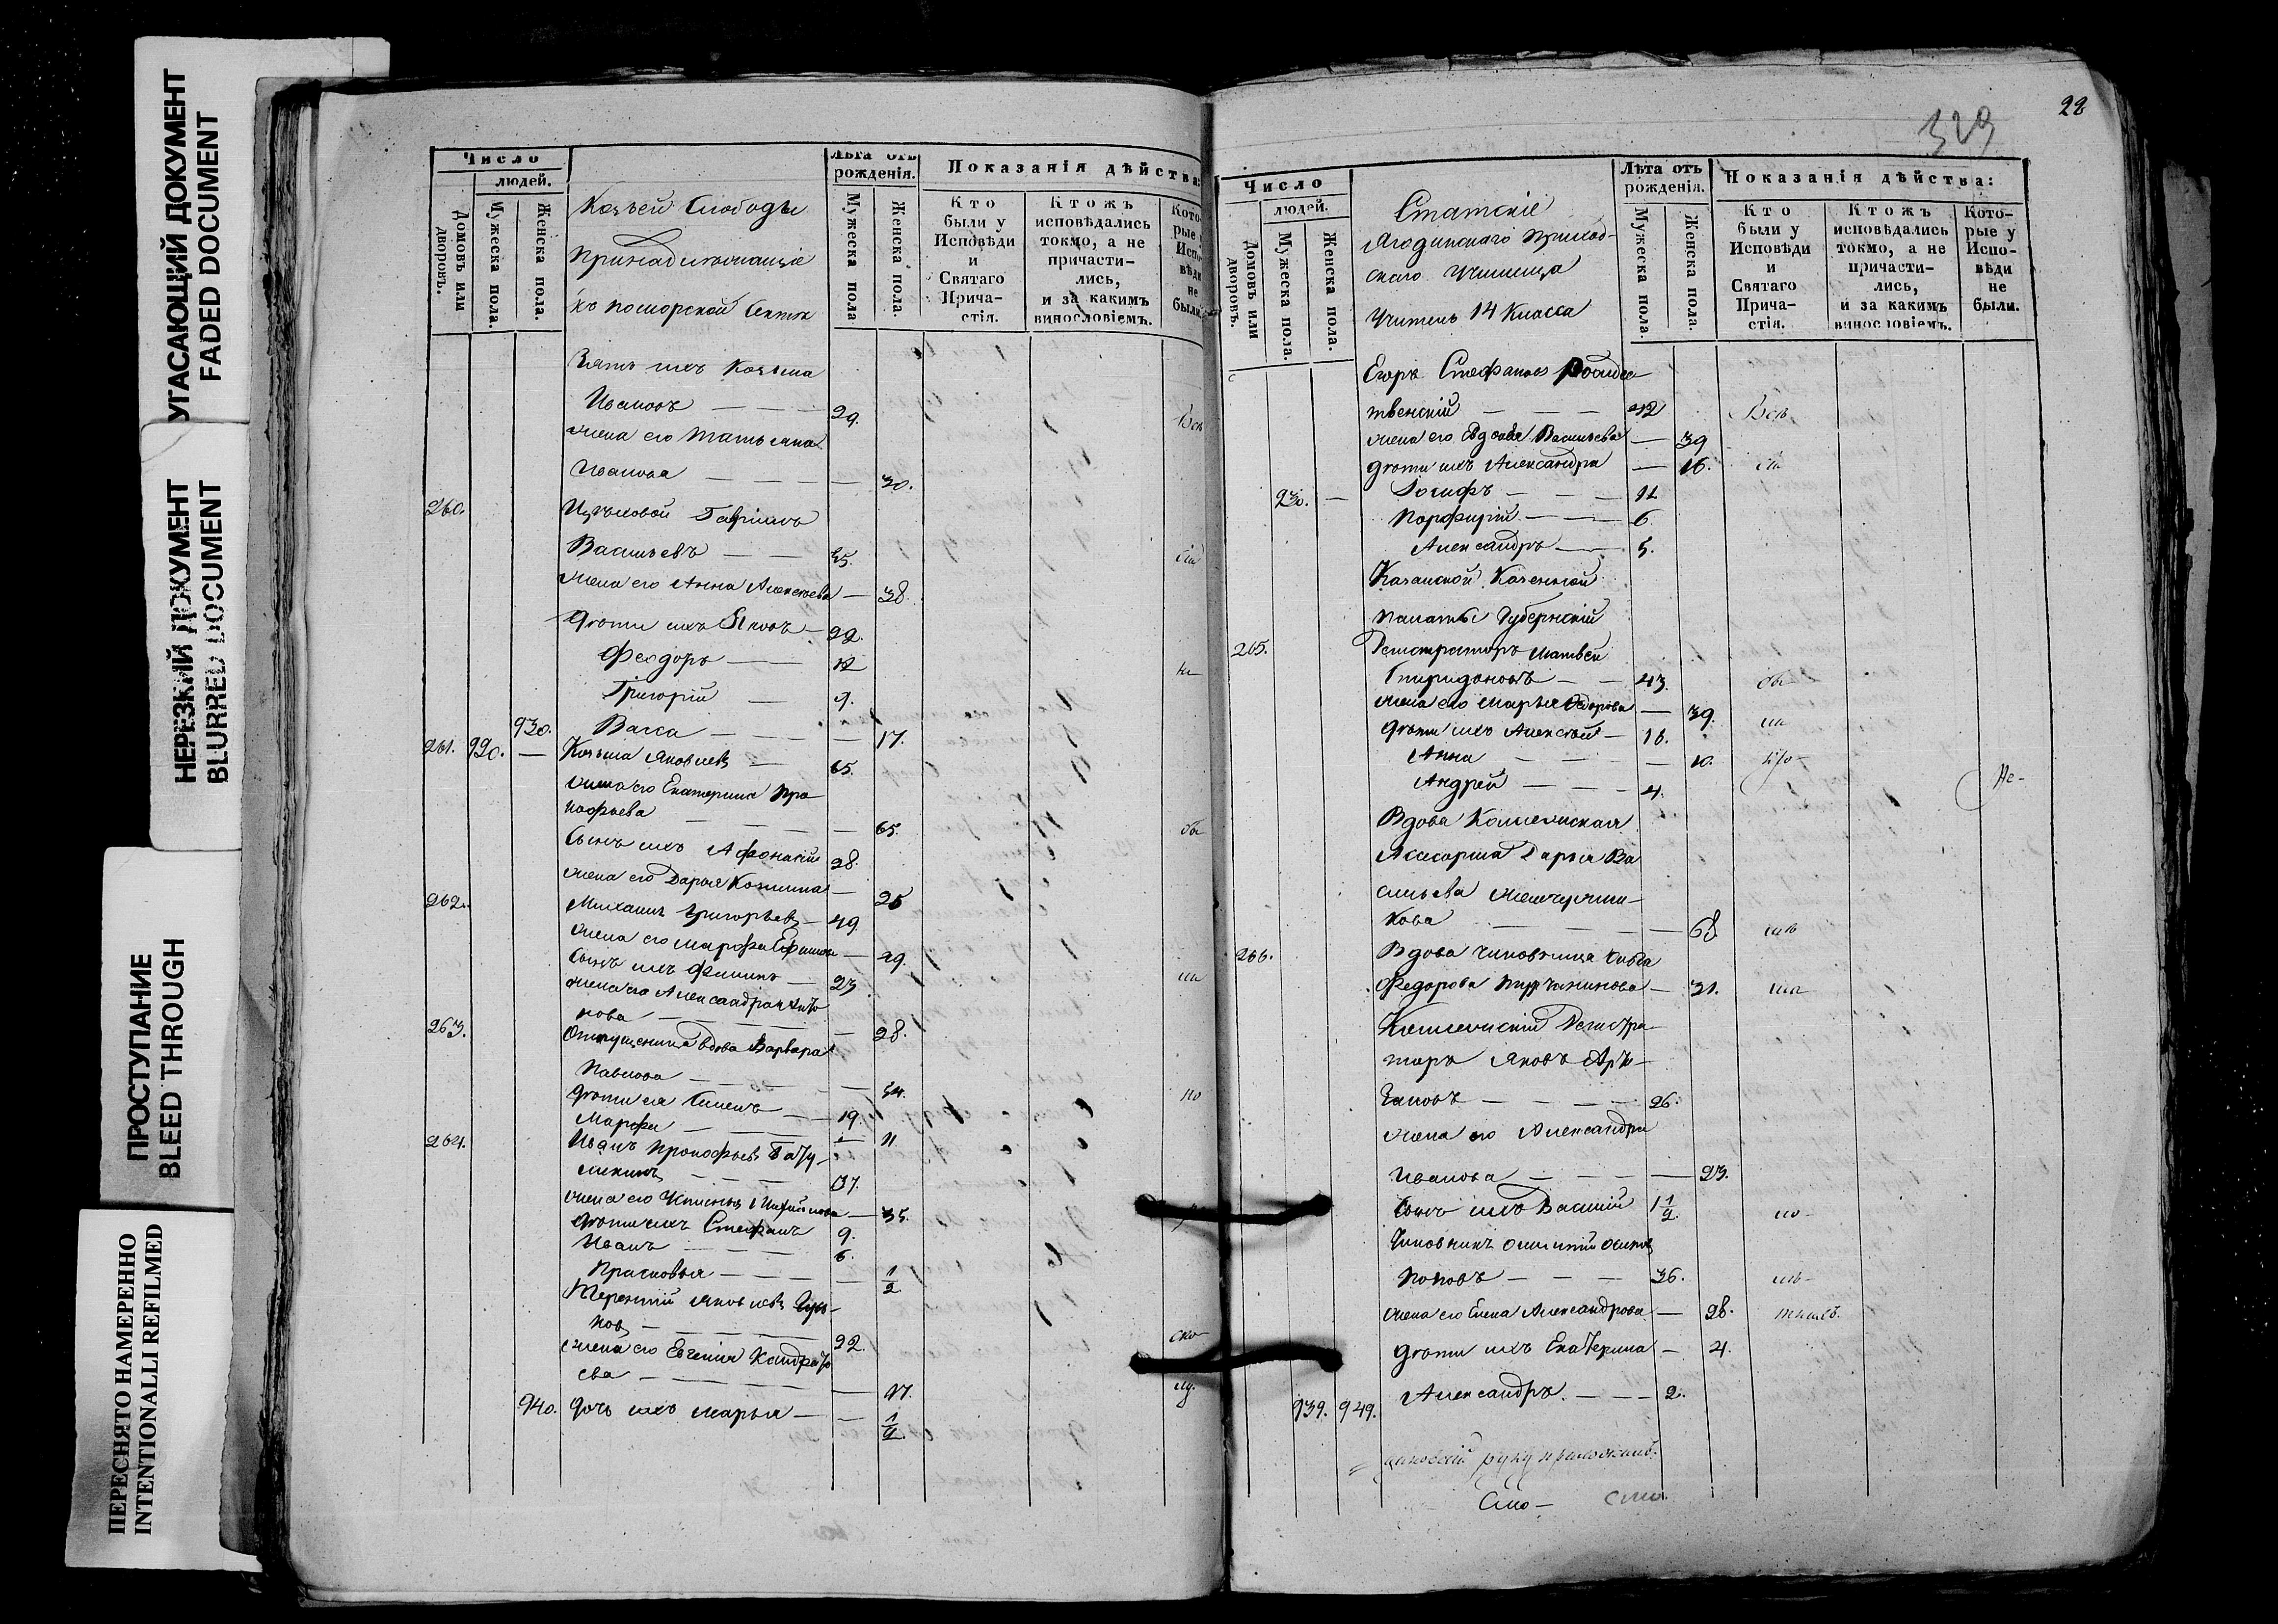 УГАСАЮЩИЙ ДОКУМЕНТ
FADED DOCUMENT
НЕРЕЗКИЙ ДОКУМЕНТ
BLURRED DOCUMENT
ПРОСТУПАНИЕ
BLEED THROUGH
ПЕРЕСНЯТО НАМЕРЕННО
INTENTIONALLI REFILMED
Число
людей.
Домовъ или дворовъ.
Мужеска пола.
Женска пола.
Козьей Слободы
Принадлежащіе
къ поморской Секты
Лѣта отъ рожденія.
Мужеска пола
Женска пола.
Показанія дѣйства:
Кто были у Исповѣди и Святаго Прича-стія.
Ктожъ исповѣдались токмо, а не причасти-лись, и за какимъ винословіемъ.
Кото-рые у Испо-вѣди не были.
Зять ихъ Козьма
Ивановъ — 29. Всѣ
жена его Татьяна
Иванова — 30.
260. Гаврилъ
Васильевъ — 45.
жена его Анна Алексѣева — 38.
дѣти ихъ Яковъ — 22.
Феодоръ — 12 не
Григорій — 9.
930. Васса — 17.
261. 920. — Козьма Яковлевъ — 65.
жена его Екатерина Про
кофьева — 65. бы
Сынъ ихъ Афонасій 28.
жена его Дарья Козмина — 25
262. Михаилъ Григорьевъ — 49
жена его Марфа Ефимова — 49.
Сынъ ихъ Филипъ — 23
жена его Александра
нова — 28.
263. Отпущеница вдова Варвара
Павлова — 54. по
дѣти ея Семенъ — 19.
Марфа — 11
264. Иванъ Прокофьевъ
37.
жена его — 35.
дѣти ихъ Стефанъ 9.
Иванъ — 6.
Прасковья — 1/2
Терентій Яковлевъ
новъ — 22.
жена его Евгенія Кондрать
ева — 17.
940. дочь ихъ Марья — 1/2.
22
329
Число
людей.
Домовъ или дворовъ.
Мужеска пола.
Женска пола.
Статскіе
Ягодинскаго Приход-
скаго Училища
Учитель 14 Класса
Лѣта отъ рожденія.
Мужеска пола.
Женска пола.
Показанія дѣйства:
Кто были у Исповѣди и Святаго Прича-стія.
Ктожъ исповѣдались токмо, а не причасти-лись, и за какимъ винословіемъ.
Кото-рые у Испо-вѣди не были.
Егоръ Стефановъ Рождес
твенскій — 42 Всѣ
жена его Евдокія Васильева — 39
дѣти ихъ Александра — 16.
930. — Іосифъ — 11
Порфирій — 6.
Александръ — 5.
Казанской Казенной
палаты Губернскій
265. Регистраторъ Матвей
Спиридоновъ — 43. бы
жена его Марья Федорова — 39.
дѣти ихъ Алексѣй — 16.
Анна — 10.
Андрей — 4. Не-
Вдова Коллежская
Асесорша Дарья Ва
сильева Жемчужни-
кова — 68
266. Вдова чиновница
Федорова — 31.
Коллежскій Регистра-
торъ Яковъ
26.
жена его Александра
Иванова — 23.
Сынъ ихъ Василій 1 1/2.
Чиновникъ
Поповъ — 36.
жена его Елена Александрова — 28.
дѣти ихъ Екатерина — 4.
Александръ — 2.
939. 949.
руку приложилъ.